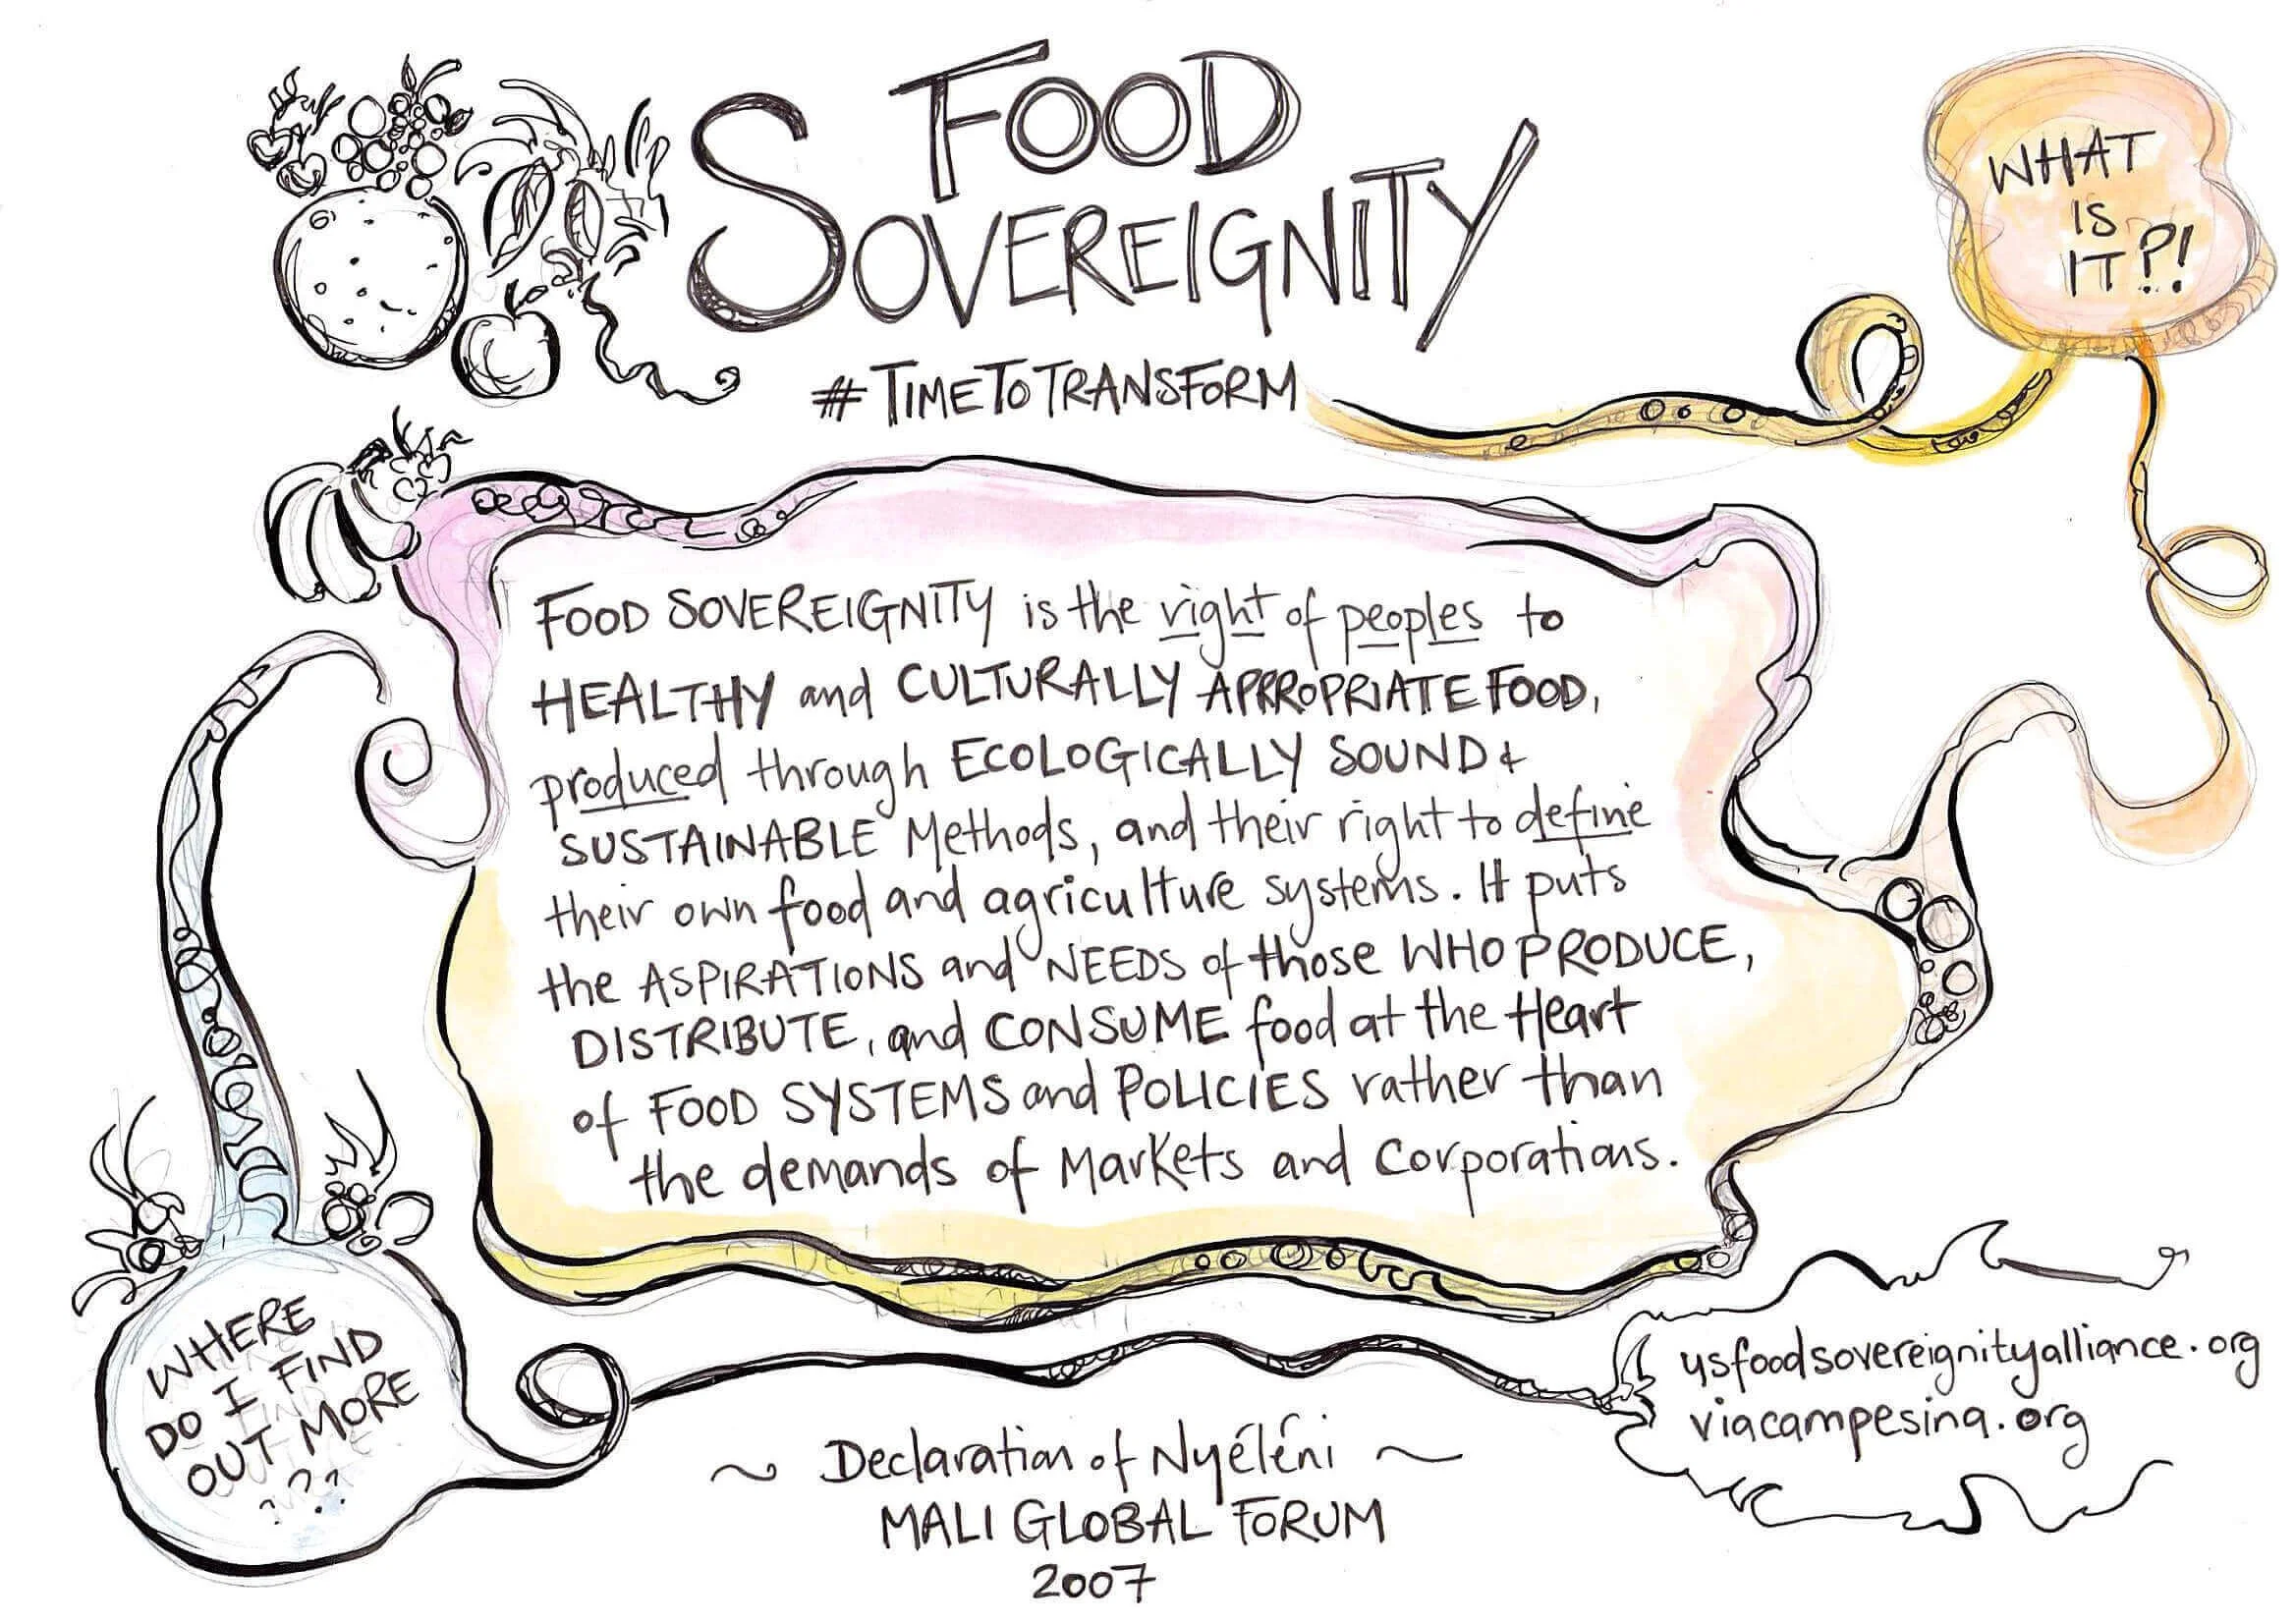 FOOD
SOVEREIGNITY
#TIMETOTRANSFORM
WHAT
IS
IT?!
FOOD SOVEREIGNITY is the right of peoples to
HEALTHY and CULTURALLY APRROPRIATE FOOD,
produced through ECOLOGICALLY SOUND &
SUSTAINABLE Methods, and their right to define
their own food and agriculture systems. It puts
the ASPIRATIONS and NEEDS of those WHO PRODUCE,
DISTRIBUTE, and CONSUME food at the Heart
of FOOD SYSTEMS and POLICIES rather than
the demands of Markets and Corporations.
WHERE
DO I FIND
OUT MORE
???
usfoodsovereignityalliance.org
viacampesina.org
~ Declaration of Nyéléni ~
MALI GLOBAL FORUM
2007